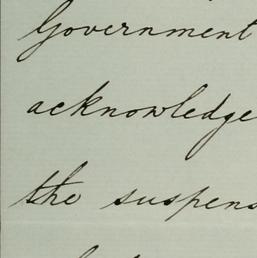 Government
acknowledge
the suspens